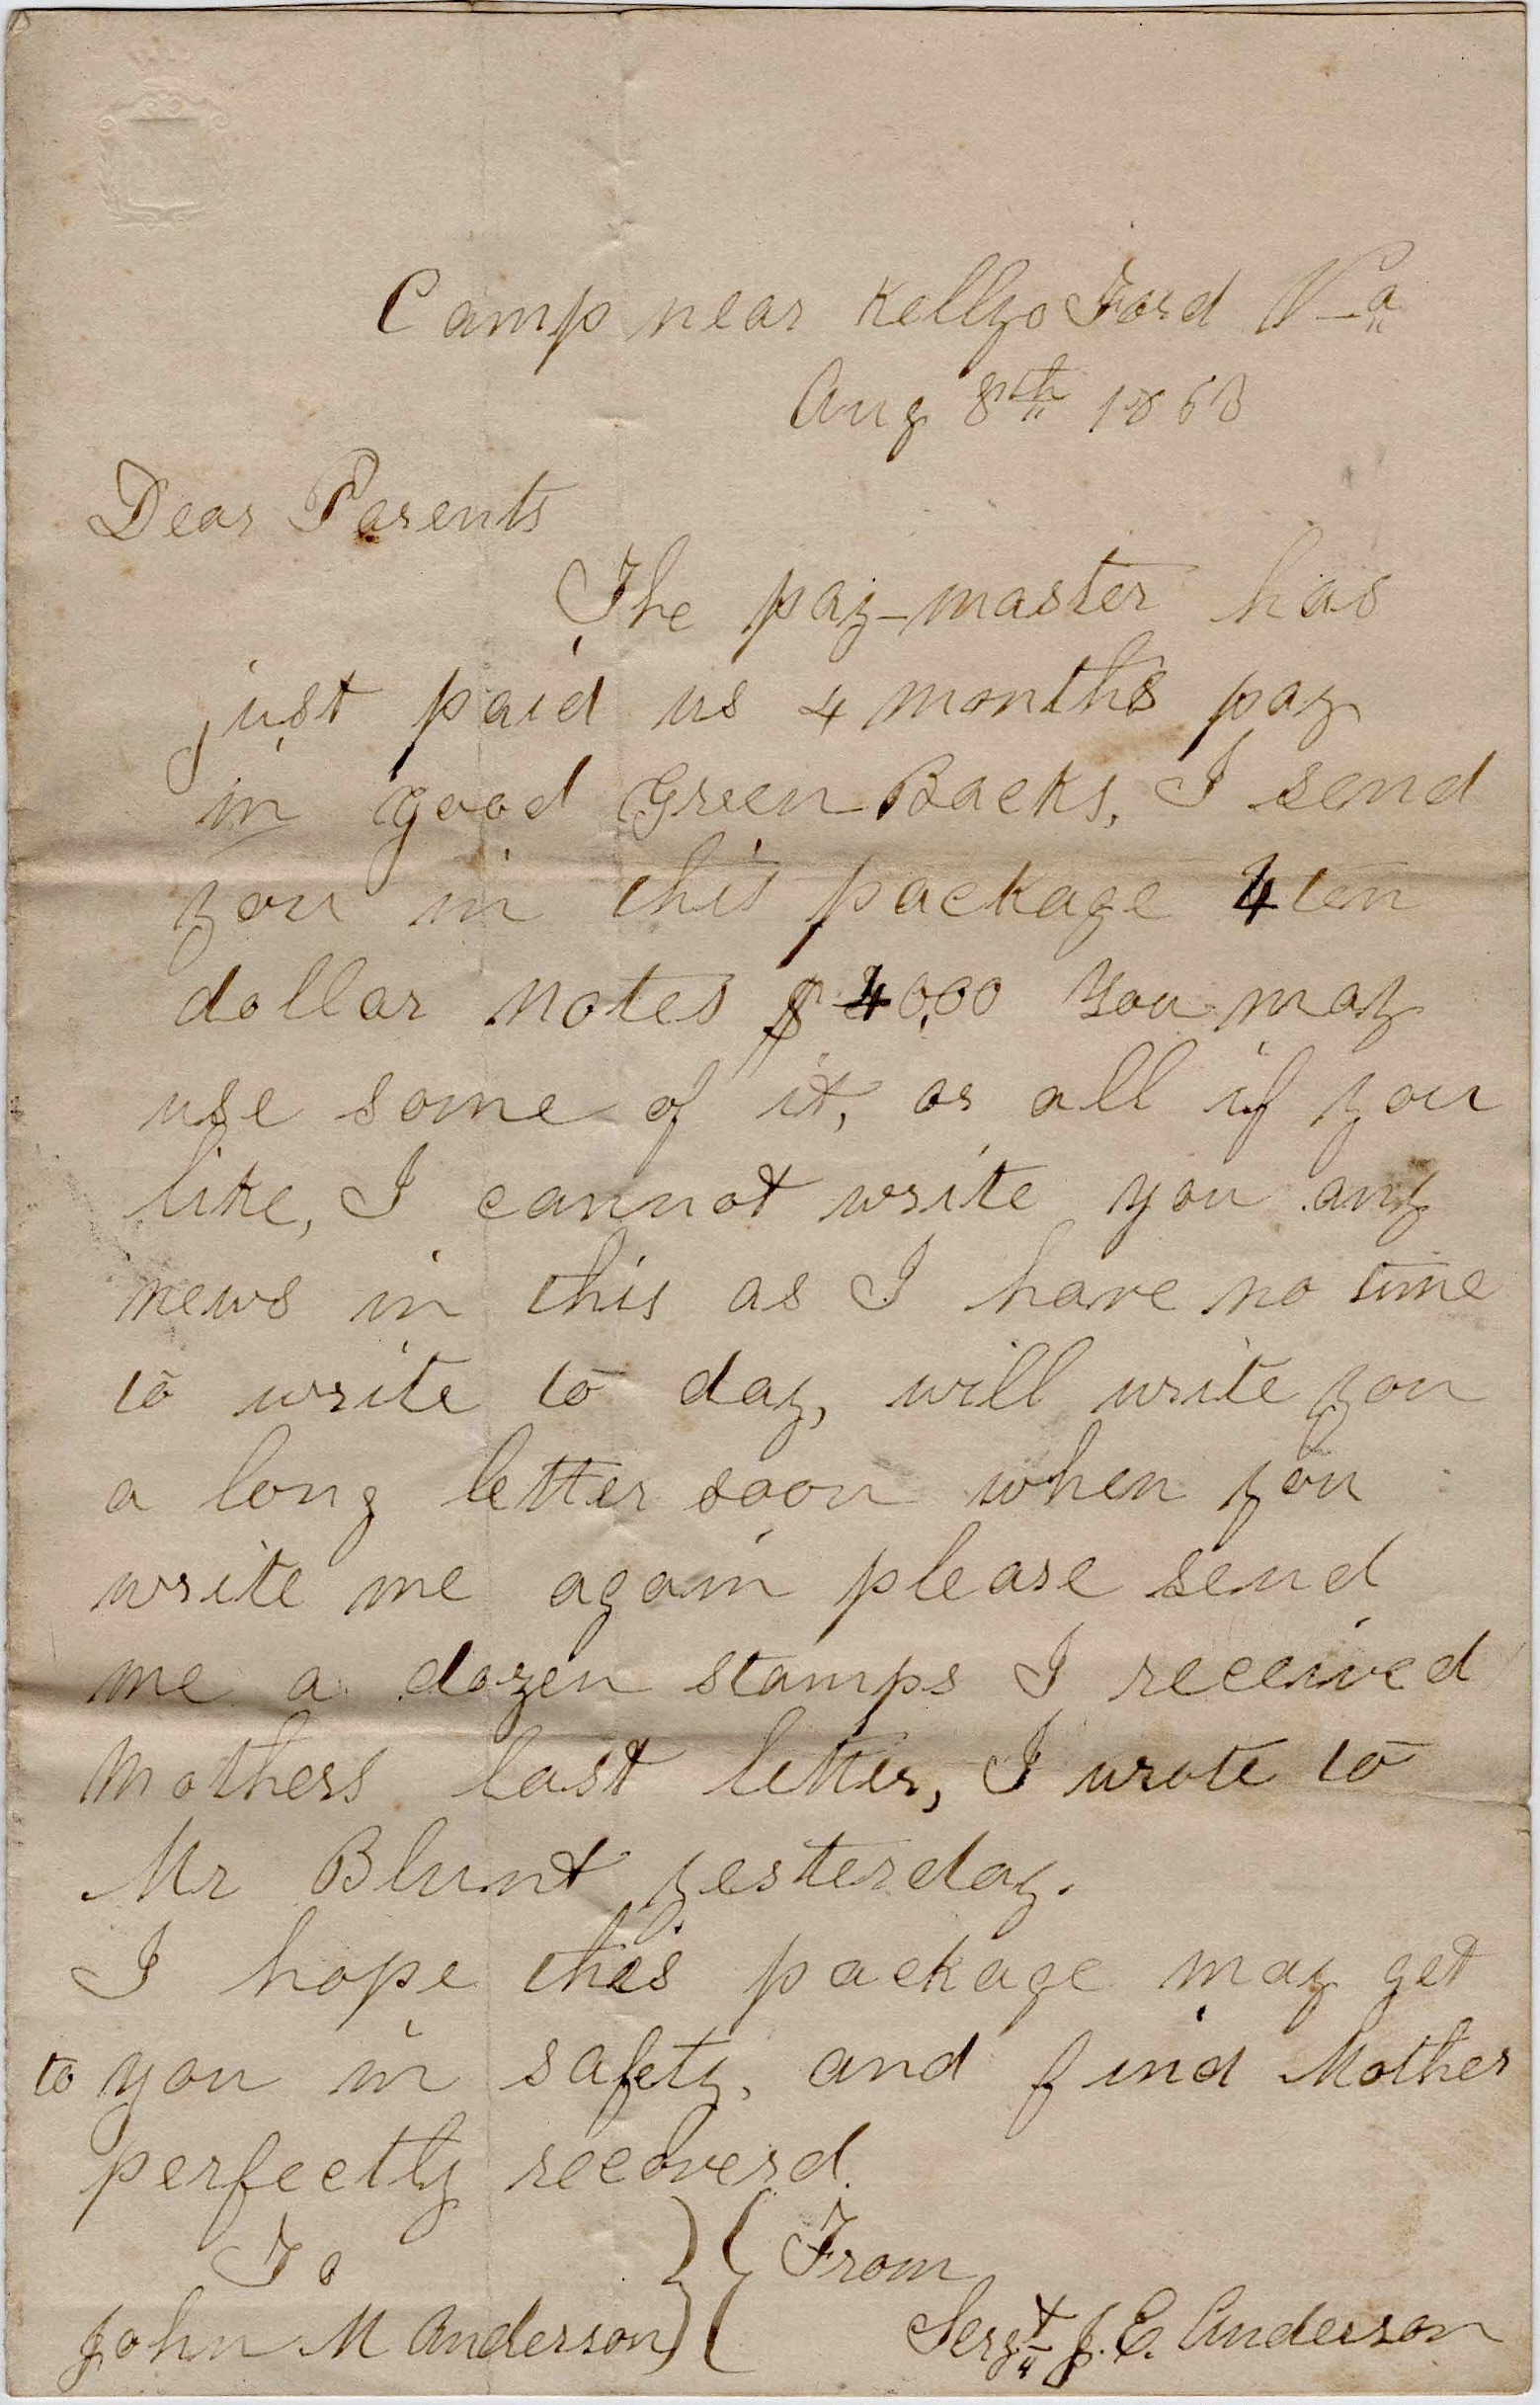 Camp near Kellys Ford Va
Aug 8th 1863
Dear Parents
The pay-master has
just paid us 4 months pay
in good Green Backs, I send
you in this package 4 ten
dollar notes $40.00 You may
use some of it, or all if you
like, I cannot write you any
news in this as I have no time
to write to day, will write you
a long letter soon when you
write me again please send
me a dozen stamps I received
Mothers last letter, I wrote to
Mr Blunt yesterday.
I hope this package may get
to you in safety, and find Mother
perfectly recoverd.
To } { From
John M Anderson } { Sergt J. E. Anderson